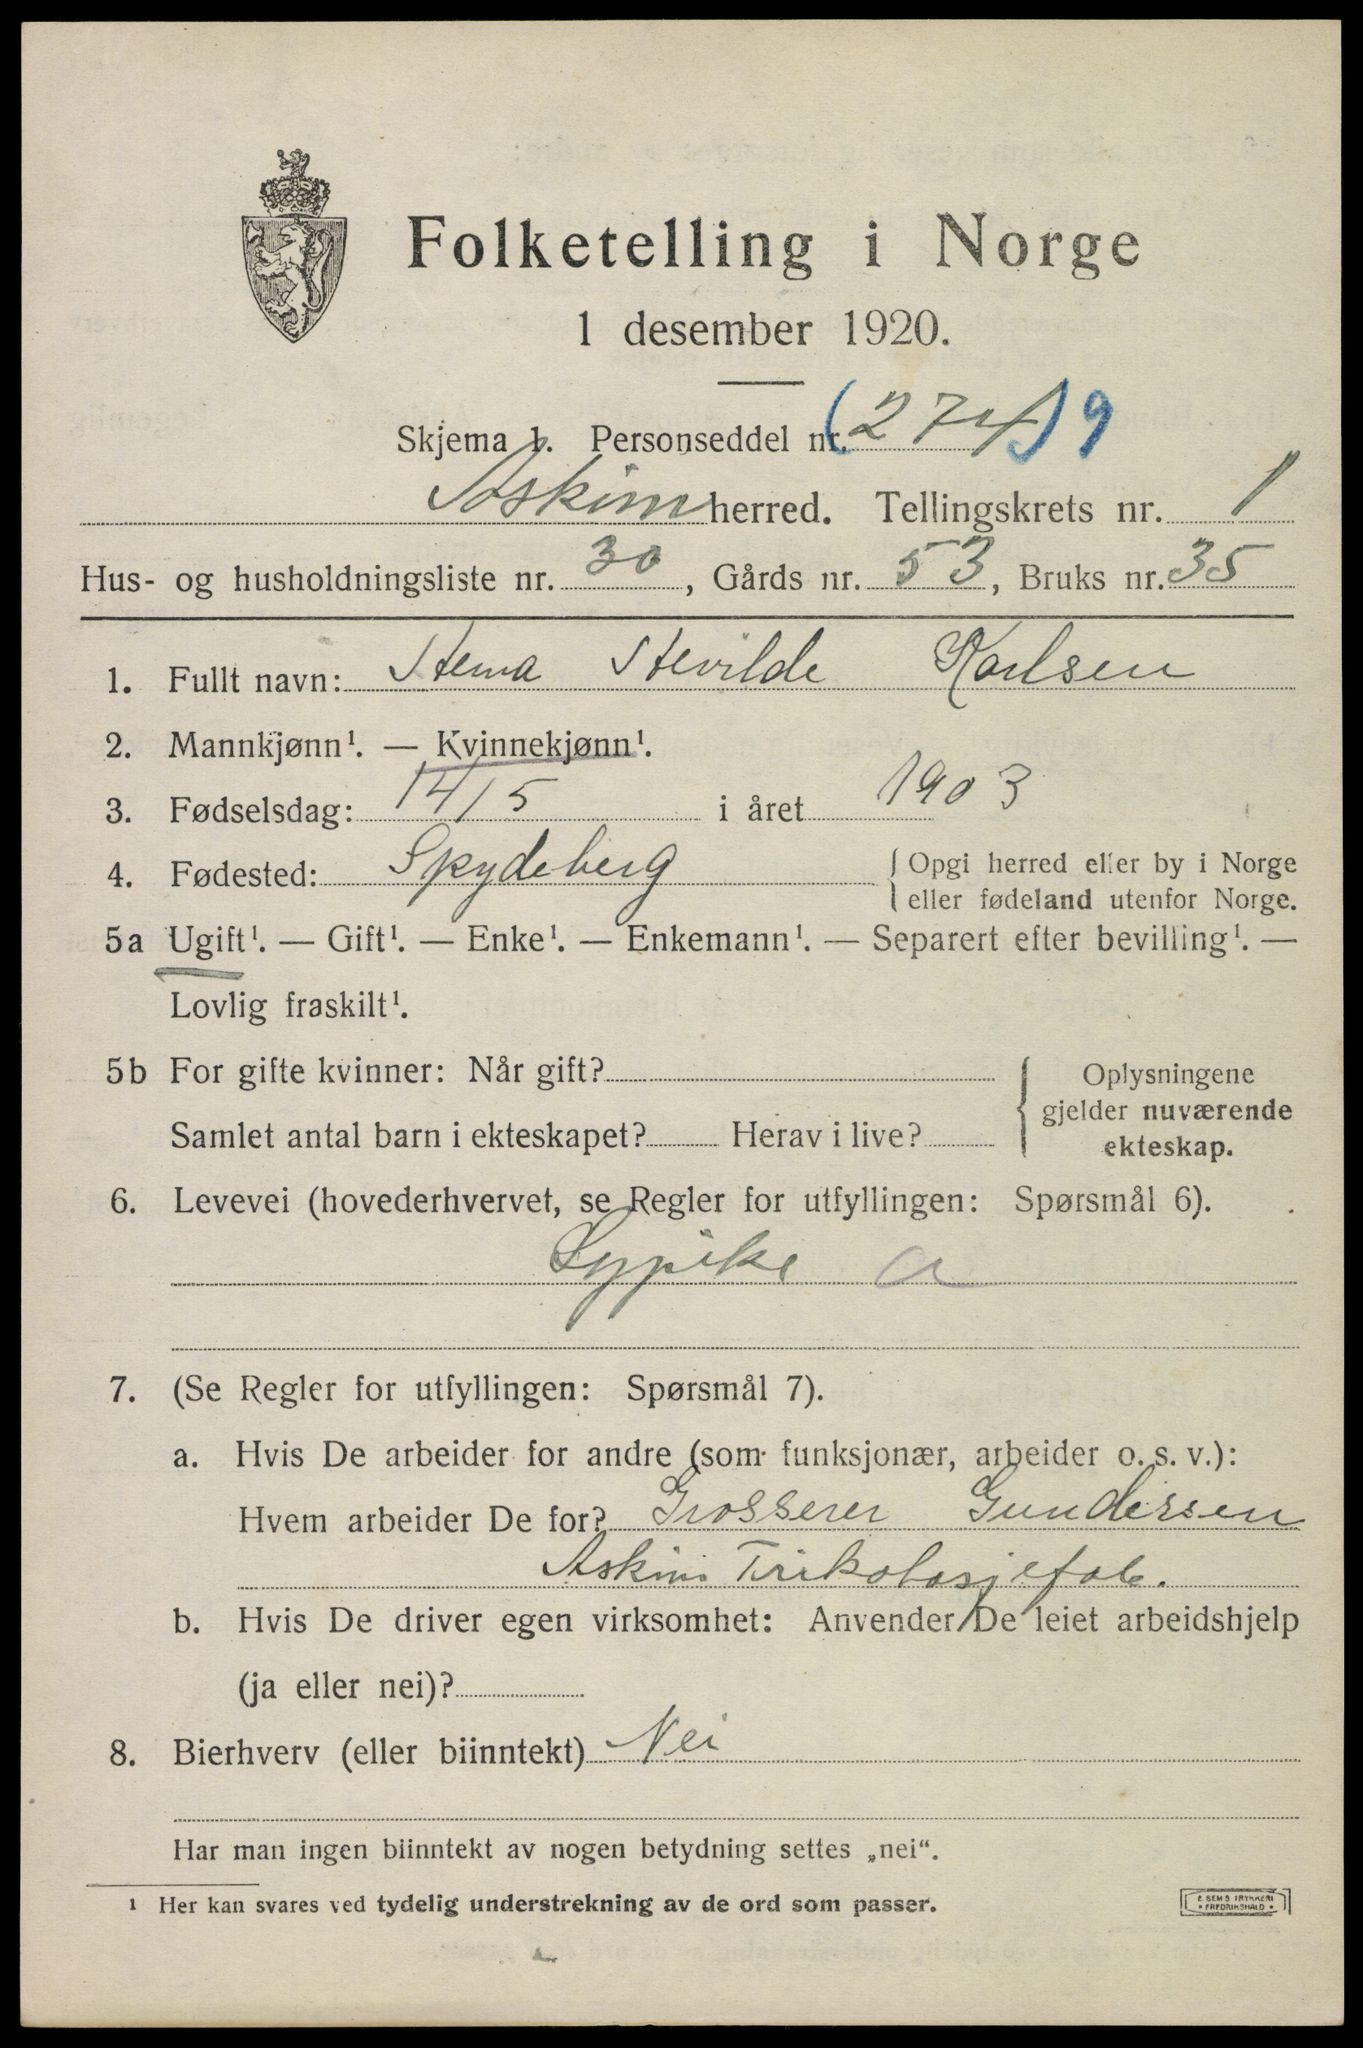 Folketelling i Norge
1 desember 1920.
Skjema 1. Personseddel nr. (274) 9
Askim herred. Tellingskrets nr. 1
Hus- og husholdningsliste nr. 30, Gårds nr. 53, Bruks nr. 35
1. Fullt navn: Karlsen
2. Mannkjønn¹. — Kvinnekjønn¹.
3. Fødselsdag: 14/5 i året 1903
4. Fødested: Spydeberg { Opgi herred eller by i Norge
eller fødeland utenfor Norge.
5a Ugift¹. — Gift¹. — Enke¹. — Enkemann¹. — Separert efter bevilling¹. —
Lovlig fraskilt¹.
5b For gifte kvinner: Når gift?
Samlet antal barn i ekteskapet? Herav i live?
{ Oplysningene
gjelder nuværende
ekteskap.
6. Levevei (hovederhvervet, se Regler for utfyllingen: Spørsmål 6).
Sypike a
7. (Se Regler for utfyllingen: Spørsmål 7).
a. Hvis De arbeider for andre (som funksjonær, arbeider o. s. v.):
Hvem arbeider De for? Grosserer Gundersen
Askim Trikotasjefab.
b. Hvis De driver egen virksomhet: Anvender De leiet arbeidshjelp
(ja eller nei)?
8. Bierhverv (eller biinntekt) Nei
Har man ingen biinntekt av nogen betydning settes „nei“.
¹ Her kan svares ved tydelig understrekning av de ord som passer.
E. SEMS TRYKKERI
• FREDRIKSHALD •